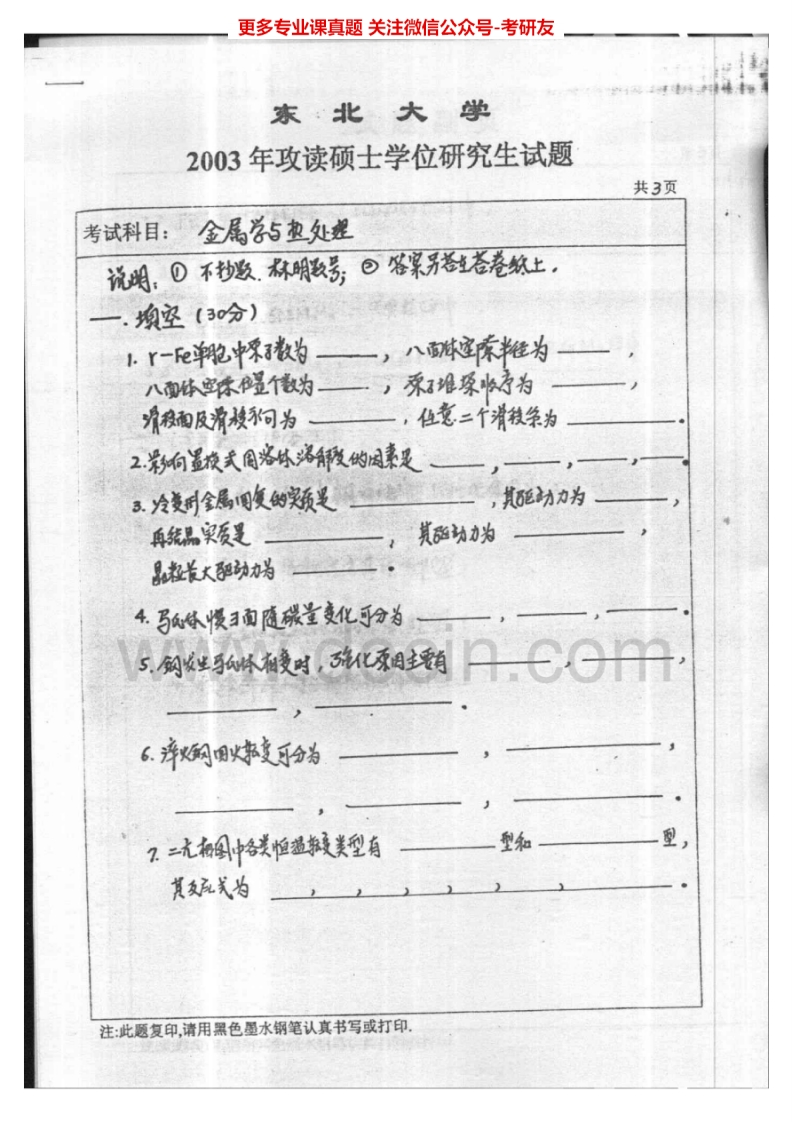 更多专业课真题 关注微信公众号-考研友
东北大学
2003 年攻读硕士学位研究生试题
共3页
考试科目: 金属学与热处理
说明: ① 不抄题, 标明题号; ② 答案另答在答卷纸上.
一. 填空 (30分)
1. r-Fe单胞中原子数为 ______, 八面体空隙半径为 ______,
八面体空隙位置个数为______, 原子堆垛次序为 ______,
滑移面及滑移方向为 ______, 任意二个滑移系为 ______.
2. 影响置换式固溶体溶解度的因素是 ______, ______, ______, ______.
3. 冷变形金属回复的实质是 ______, 其驱动力为 ______,
再结晶实质是 ______, 其驱动力为 ______,
晶粒长大驱动力为 ______.
4. 马氏体惯习面随碳量变化可分为 ______, ______, ______.
5. 钢发生马氏体相变时, 强化原因主要有 ______, ______,
______, ______.
6. 淬火钢回火转变可分为 ______, ______,
______, ______, ______.
7. 二元相图中各类恒温转变类型有 ______型和 ______型,
其反应式为 ___, ___, ___, ___, ___, ___.
注:此题复印,请用黑色墨水钢笔认真书写或打印.
www.docin.com